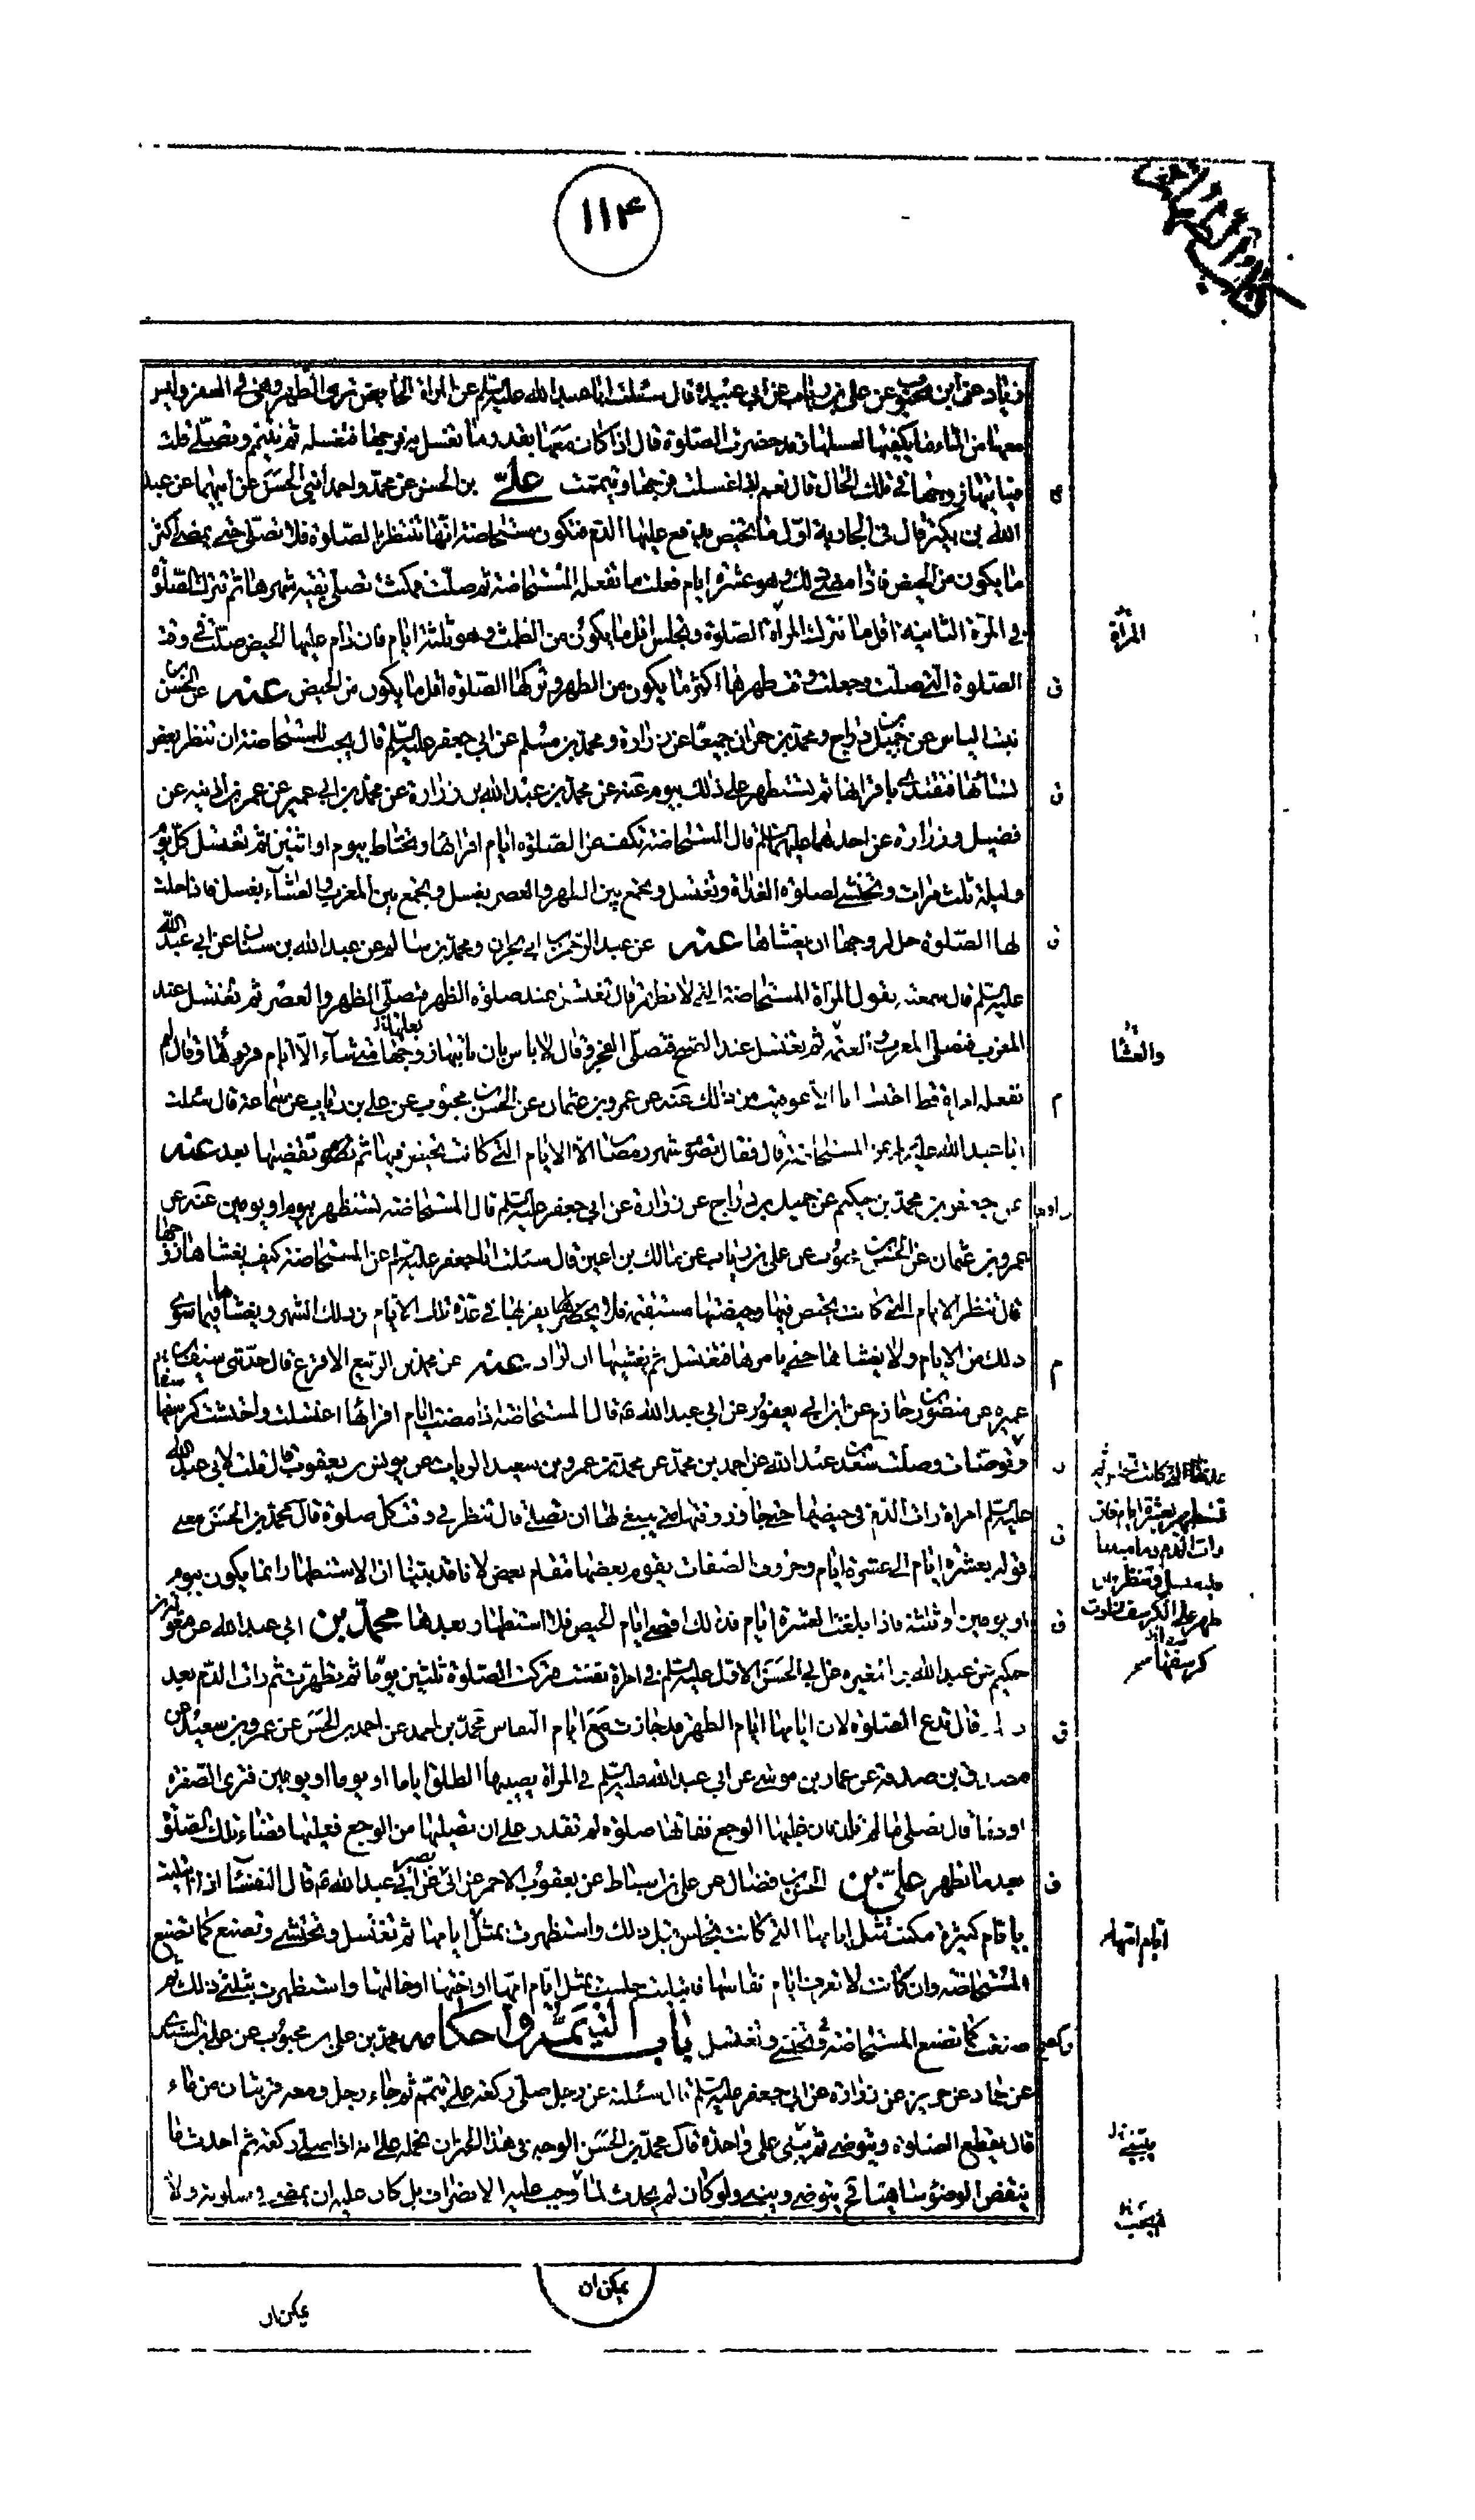 ١١۴
زياد عن ابن محبوب عن علي بن رئاب عن ابي عبيدة قال سئلت ابا عبد الله عليه السلم عن المراة الحايض ترى الطهر وهي في السفر وليس
معها من الماء ما يكفيها لغسلها وقد حضرت الصلوة قال اذا كان معها بقدر ما تغسل به فرجها فتغسله ثم تتيمم وتصلي قلت
فياتيها زوجها في تلك الحال قال نعم اذا غسلت فرجها وتيممت علي بن الحسن عن محمد واحمد ابني الحسن عن ابيهما عن عبد
الله بن بكير قال في الجارية اول ما تحيض يدفع عليها الدم فتكون مستحاضة انها تنتظر بالصلوة فلا تصلي حتى يمضي اكثر
ما يكون من الحيض فاذا مضى ذلك وهو عشرة ايام فعلت ما تفعله المستحاضة ثم صلت فمكثت تصلي بقية شهرها ثم تترك الصلوة
في المرة الثانية اقل ما تترك المراة الصلوة وتجلس اقل ما يكون من الطمث وهو ثلثة ايام فان دام عليها الحيض صلت في وقت
المراة
الصلوة التي صلت وجعلت وقت طهرها اكثر ما يكون من الطهر وتركها الصلوة اقل ما يكون من الحيض عنه عن الحسن
بن بنت الياس عن جميل بن دراج ومحمد بن حمران جميعا عن زرارة ومحمد بن مسلم عن ابي جعفر عليه السلم قال يجب للمستحاضة ان تنظر بعض
نسائها فتقتدي باقرائها ثم تستظهر على ذلك بيوم عنه عن محمد بن عبد الله بن زرارة عن محمد بن ابي عمير عن عمر بن اذينه عن
فضيل وزرارة عن احدهما عليهما السلم قال المستحاضة تكف عن الصلوة ايام اقرائها وتحتاط بيوم او اثنين ثم تغتسل كل يوم
وليلة ثلث مرات وتحتشي لصلوة الغداة وتغتسل وتجمع بين الظهر والعصر بغسل وتجمع بين المغرب والعشاء بغسل فاذا حلت
لها الصلوة حل لزوجها ان يغشاها عنه عن عبد الرحمن بن ابي نجران ومحمد بن سالم عن عبد الله بن سنان عن ابي عبد الله
عليه السلم قال سمعته يقول المراة المستحاضة التي لا تطهر قال تغتسل عند صلوة الظهر فتصلي الظهر والعصر ثم تغتسل عند
المغرب فتصلي المغرب والعتمة ثم تغتسل عند الصبح فتصلي الفجر وقال لا باس بان ياتيها زوجها متى شاء الا ايام قرئها وقال لم
والعشا
تفعله امراة قط احتسابا الا عوفيت من ذلك عنه عن عمرو بن عثمان عن الحسن بن محبوب عن علي بن رئاب عن سماعة قال سئلت
ابا عبد الله عليه السلم عن المستحاضة قال فقال تصوم شهر رمضان الا الايام التي كانت تحيض فيها ثم تقضيها بعد عنه
عن جعفر بن محمد بن حكيم عن جميل بن دراج عن زرارة عن ابي جعفر عليه السلم قال المستحاضة تستظهر بيوم او يومين عنه عن
عمرو بن عثمان عن الحسن بن محبوب عن علي بن رئاب عن مالك بن اعين قال سئلت ابا جعفر عليه السلم عن المستحاضة كيف يغشاها زوجها
قال تنظر الايام التي كانت تحيض فيها وحيضتها مستقيمة فلا يقربها في عدة تلك الايام من ذلك الشهر ويغشاها فيما سوى
ذلك من الايام ولا يغشاها حتى يامرها فتغتسل ثم يغشيها ان اراد عنه عن محمد بن الربيع الاقرع قال حدثني سيف بن
عميره عن منصور بن حازم عن ابن ابي يعفور عن ابي عبد الله ع قال المستحاضة اذا مضت ايام اقرائها اغتسلت واحتشت كرسفها
وتوضات وصلت سعد بن عبد الله عن احمد بن محمد عن محمد بن عمرو بن سعيد الزيات عن يونس بن يعقوب قال قلت لابي عبد الله
عليه السلم امراة رات الدم في حيضها حتى جاوز وقتها متى ينبغي لها ان تصلي قال تنظر في وقت كل صلوة قال محمد بن الحسن معنى
قوله بعشرة ايام الى عشرة ايام وحروف الصفات يقوم بعضها مقام بعض لانا قد بينا ان الاستظهار انما يكون بيوم
او يومين او ثلثة فاذا بلغت العشرة ايام فذلك اقصى ايام الحيض فلا استظهار بعدها محمد بن ابي عبد الله عن معوية بن
كرسفها
حكيم عن عبد الله بن المغيره عن ابي الحسن الاول عليه السلم في امراة نفست فتركت الصلوة ثلثين يوما ثم تطهرت ثم رات الدم بعد
ذلك قال تدع الصلوة لان ايامها ايام الطهر قد جازت مع ايام النفاس محمد بن احمد عن احمد بن الحسن عن عمرو بن سعيد عن
مصدق بن صدقة عن عمار بن موسى عن ابي عبد الله عليه السلم في المراة يصيبها الطلق اياما او يوما او يومين فترى الصفرة
او دما قال تصلي ما لم تلد فان غلبها الوجع ففاتها صلوة لم تقدر على ان تصليها من الوجع فعليها قضاء تلك الصلوة
بعد ما تطهر علي بن الحسن بن فضال عن علي بن اسباط عن يعقوب الاحمر عن ابي بصير عن ابي عبد الله ع قال النفساء اذا ابتليت
بايام كثيرة مكثت مثل ايامها التي كانت تجلس قبل ذلك واستظهرت بمثل ايامها ثم تغتسل وتحتشي وتصنع كما تصنع
ايام امها
المستحاضة وان كانت لا تعرف ايام نفاسها فابتليت جلست بمثل ايام امها او اختها او خالتها واستظهرت بثلثي ذلك ثم
صنعت كما تصنع المستحاضة تحتشي وتغتسل باب التيمم واحكامه محمد بن علي بن محبوب عن علي بن السندي
عن حماد عن حريز عن زرارة عن ابي جعفر عليه السلم قال سئلته عن رجل صلى ركعة على تيمم ثم جاء رجل ومعه قربتان من ماء
قال يقطع الصلوة ويتوضى ثم يبني على واحدة قال محمد بن الحسن الوجه في هذا الخبر ان نحمله على انه اذا صلى ركعة ثم احدث ما
ينقض الوضوء ساهيا فح يتوضى ويبني ولو كان لم يحدث لما وجب عليه الانصراف بل كان عليه ان يمضي في صلوته ولا
يمكن ان
يمكن ان